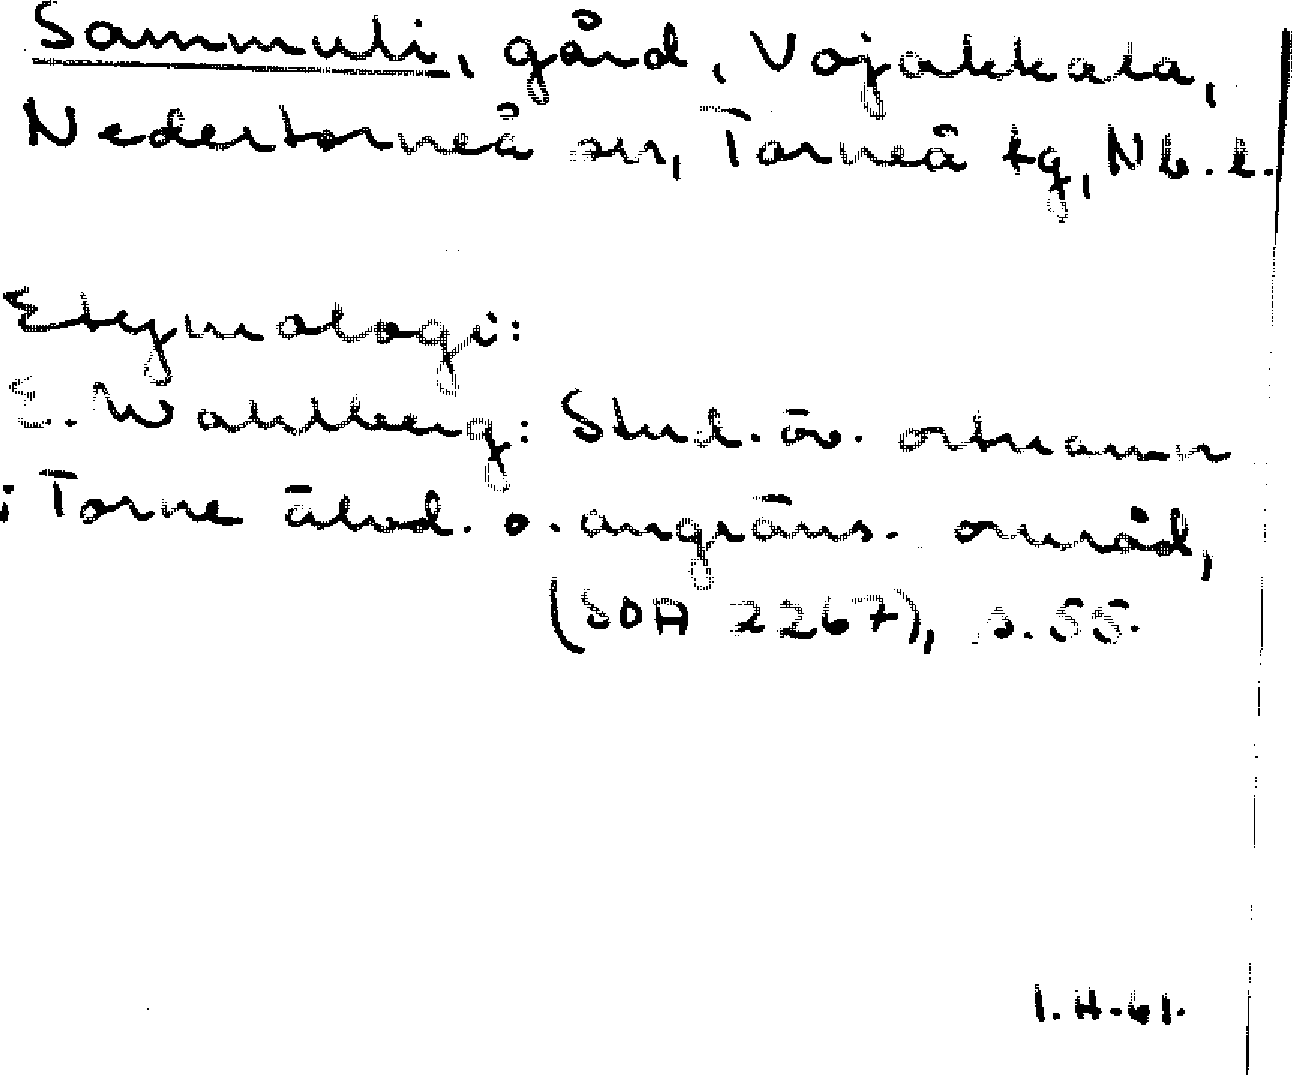 Sammuli, gård, Vojakkala,
Nedertorneå sn, Torneå tg, Nb. l.
Etymologi:
E. Wahlberg: Stud. öv. ortnamn
i Torne älvd. o. angräns. område,
(SOA 2267), s. 55.
I. H-61.